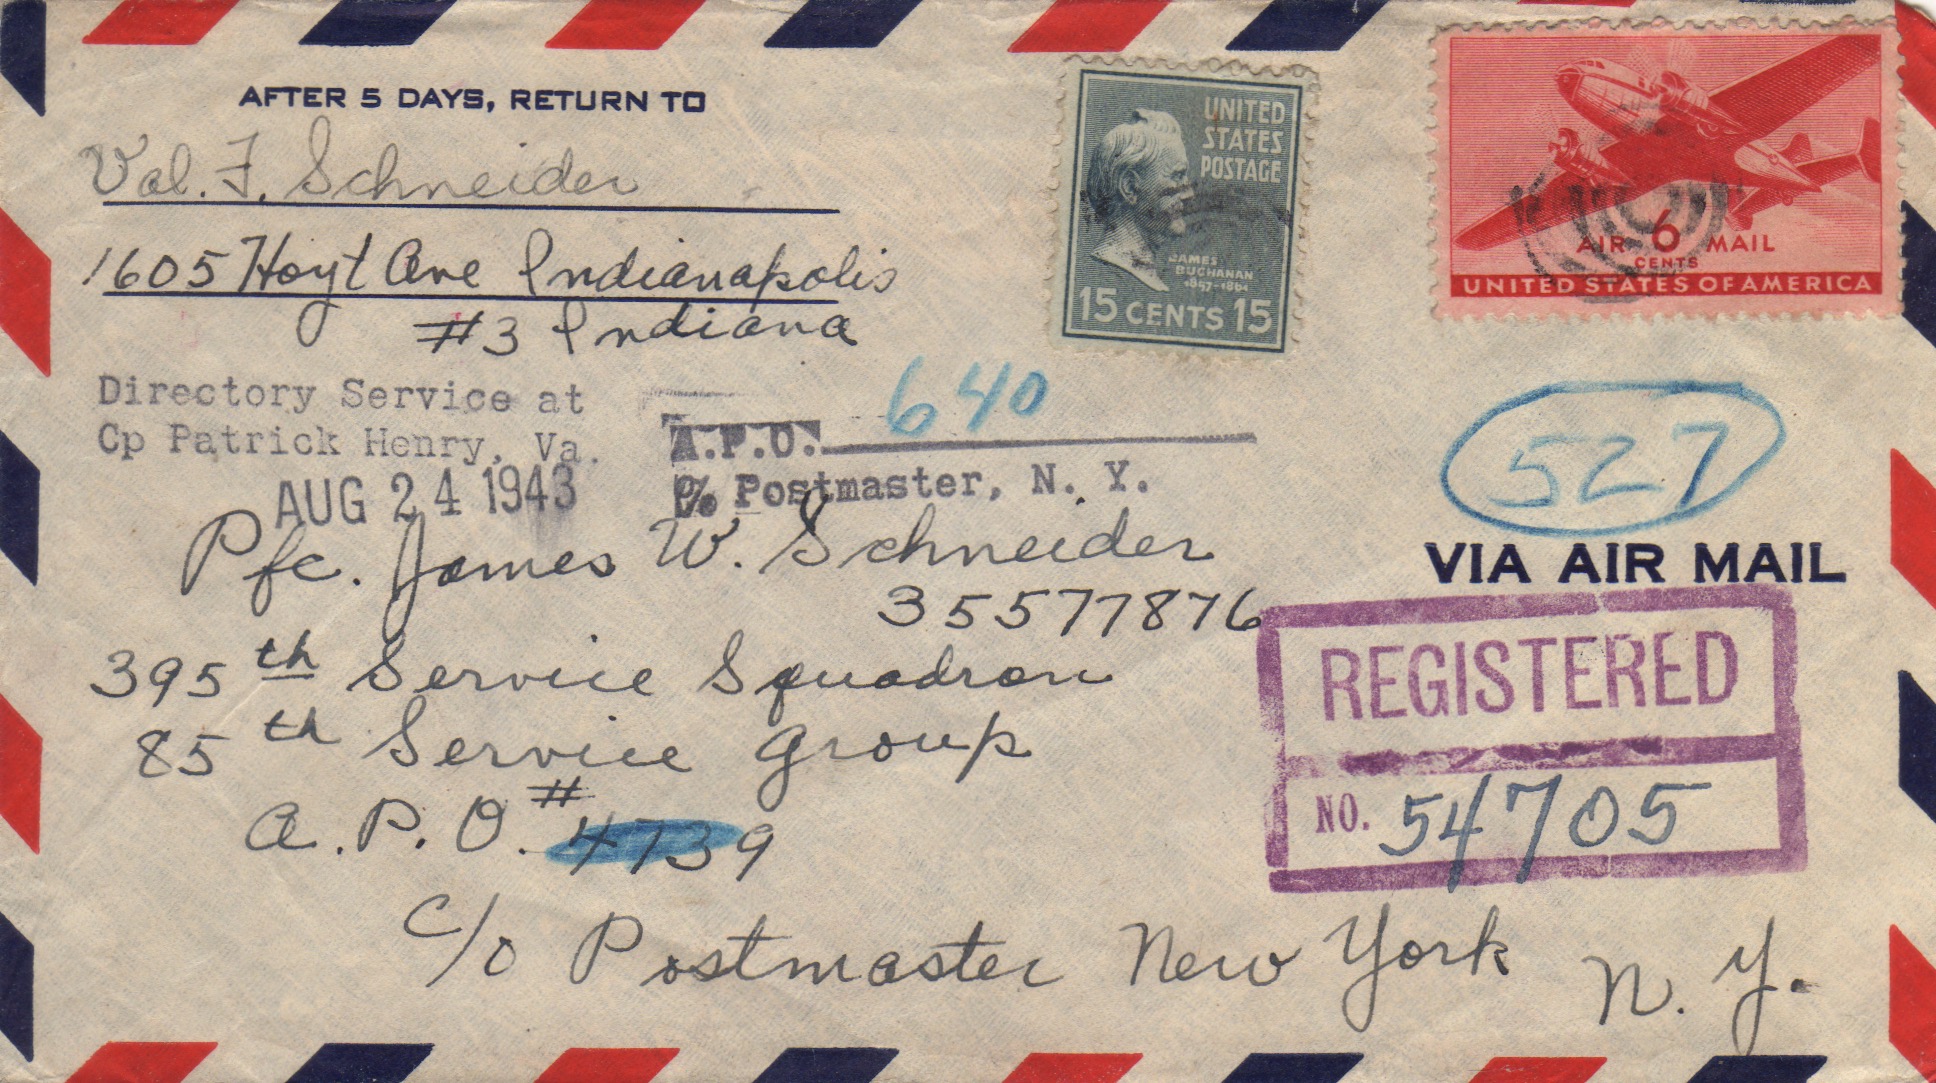 AFTER 5 DAYS, RETURN TO
Val. F. Schneider
1605 Hoyt Ave Indianapolis
#3 Indiana
UNITED
STATES
POSTAGE
JAMES
BUCHANAN
1857-1861
15 CENTS 15
AIR 6 MAIL
CENTS
UNITED STATES OF AMERICA
Directory Service at
Cp Patrick Henry, Va.
AUG 24 1943
640
A.P.O.
% Postmaster, N. Y.
527
VIA AIR MAIL
Pfc. James W. Schneider
35577876
395th Service Squadron
85th Service Group
A.P.O. #4739
c/o Postmaster New York N. Y.
REGISTERED
NO. 54705